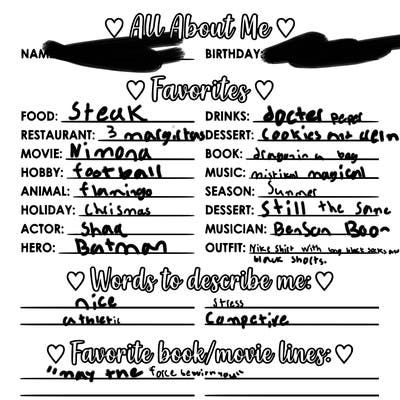 ♡ All About Me ♡
NAM BIRTHDAY:
♡ Favorites ♡
FOOD: Steak DRINKS: docter peper
RESTAURANT: 3 margiritas DESSERT: Cookies and
MOVIE: Nimona BOOK: dragon in a bag
HOBBY: football MUSIC: magical
ANIMAL: flamingo SEASON: Summer
HOLIDAY: Chrismas DESSERT: Still the same
ACTOR: Shaq MUSICIAN: Benson Boon
HERO: Batman OUTFIT: Nike shirt with long black socks and
black shorts.
♡ Words to describe me: ♡
nice stress
athletic Competive
♡ Favorite book/movie lines: ♡
"may the force be with you"